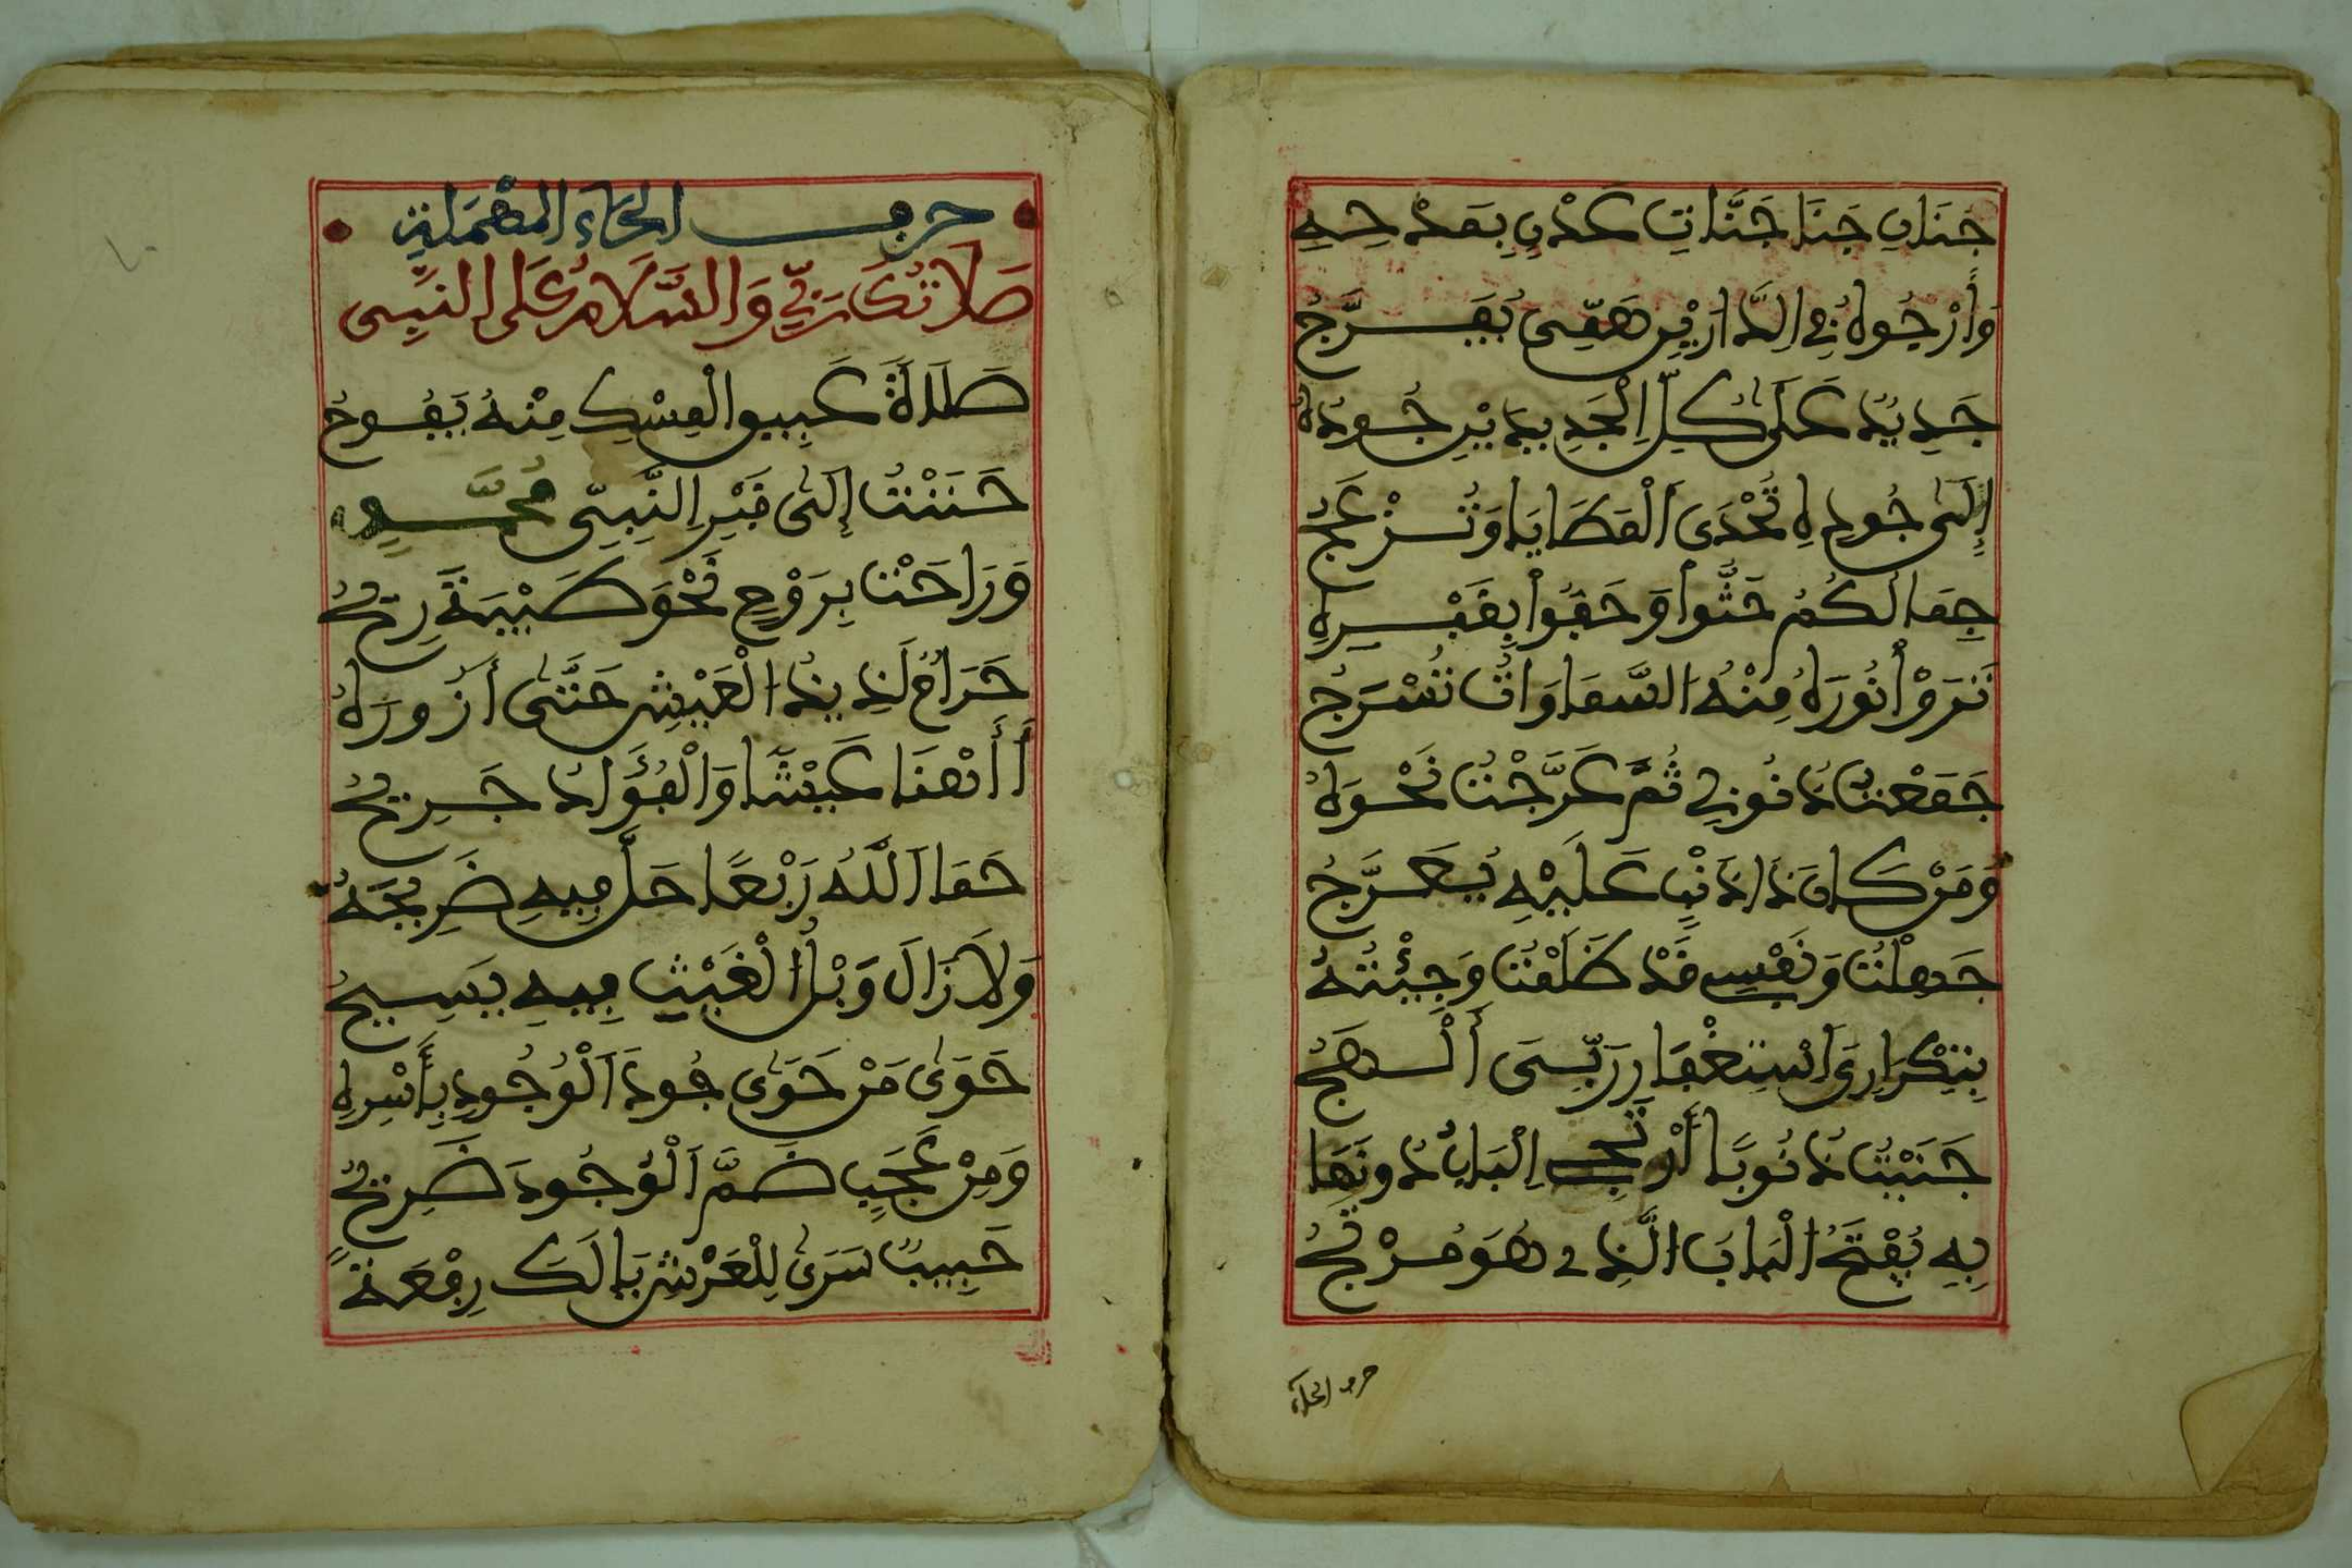 جَنَانِ جَنَا جَنَّاتِ عَدْنٍ بِمَدْحِهِ
وَأَرْجُوهُ فِي الدَّارَيْنِ هَمِّي يُفَرَّجُ
جَدِيدٌ عَلَى كُلِّ الْجَدِيدَيْنِ جُودُهُ
إِلَى جُودِهِ تُحْدَى الْمَطَايَا وَتُزْعَجُ
جِمَالَكُمْ حُثُّوا وَحَفُّوا بِقَبْرِهِ
تَرَوْا نُورَهُ مِنْهُ السَّمَاوَاتُ تُسْرَجُ
جَمَعْتُ ذُنُوبِي ثُمَّ عَرَّجْتُ نَحْوَهُ
وَمَنْ كَانَ ذَا ذَنْبٍ عَلَيْهِ يُعَرِّجُ
جَهِلْتُ وَنَفْسِي قَدْ ظَلَمْتُ وَجِئْتُهُ
بِتِكْرَارِي اسْتِغْفَارَ رَبِّيَ أَلْهَجُ
جَنَيْتُ ذُنُوبًا أُرْتِجَ الْبَابُ دُونَهَا
بِهِ يُفْتَحُ الْبَابَ الَّذِي هُوَ مُرْتَجُ
حرف الحاء
حرف الحَاءِ المُهْمَلَةِ
صَلَاتُكَ رَبِّي وَالسَّلَامُ عَلَى النَّبِي
صَلَاةً عَبِيرُ الْمِسْكِ مِنْهُ يَفُوحُ
حَنَنْتُ إِلَى قَبْرِ النَّبِيِّ مُحَمَّدٍ
وَرَاحَتْ بِرَوْحٍ نَحْوَ طَيْبَةَ رِيحُ
حَرَامٌ لَذِيذُ الْعَيْشِ حَتَّى أَزُورَهُ
أَأَهْنَا عَيْشًا وَالْفُؤَادُ جَرِيحُ
حَمَا اللَّهُ رَبْعًا حَلَّ فِيهِ ضَرِيحُهُ
وَلَا زَالَ وَبْلُ الْغَيْثِ فِيهِ يَسِيحُ
حَوَى مَنْ حَوَى جُودَ الْوُجُودِ بِأَسْرِهِ
وَمِنْ عَجَبٍ ضَمَّ الْوُجُودَ ضَرِيحُ
حَبِيبٌ سَرَى لِلْعَرْشِ يَا لَكَ رِفْعَةً